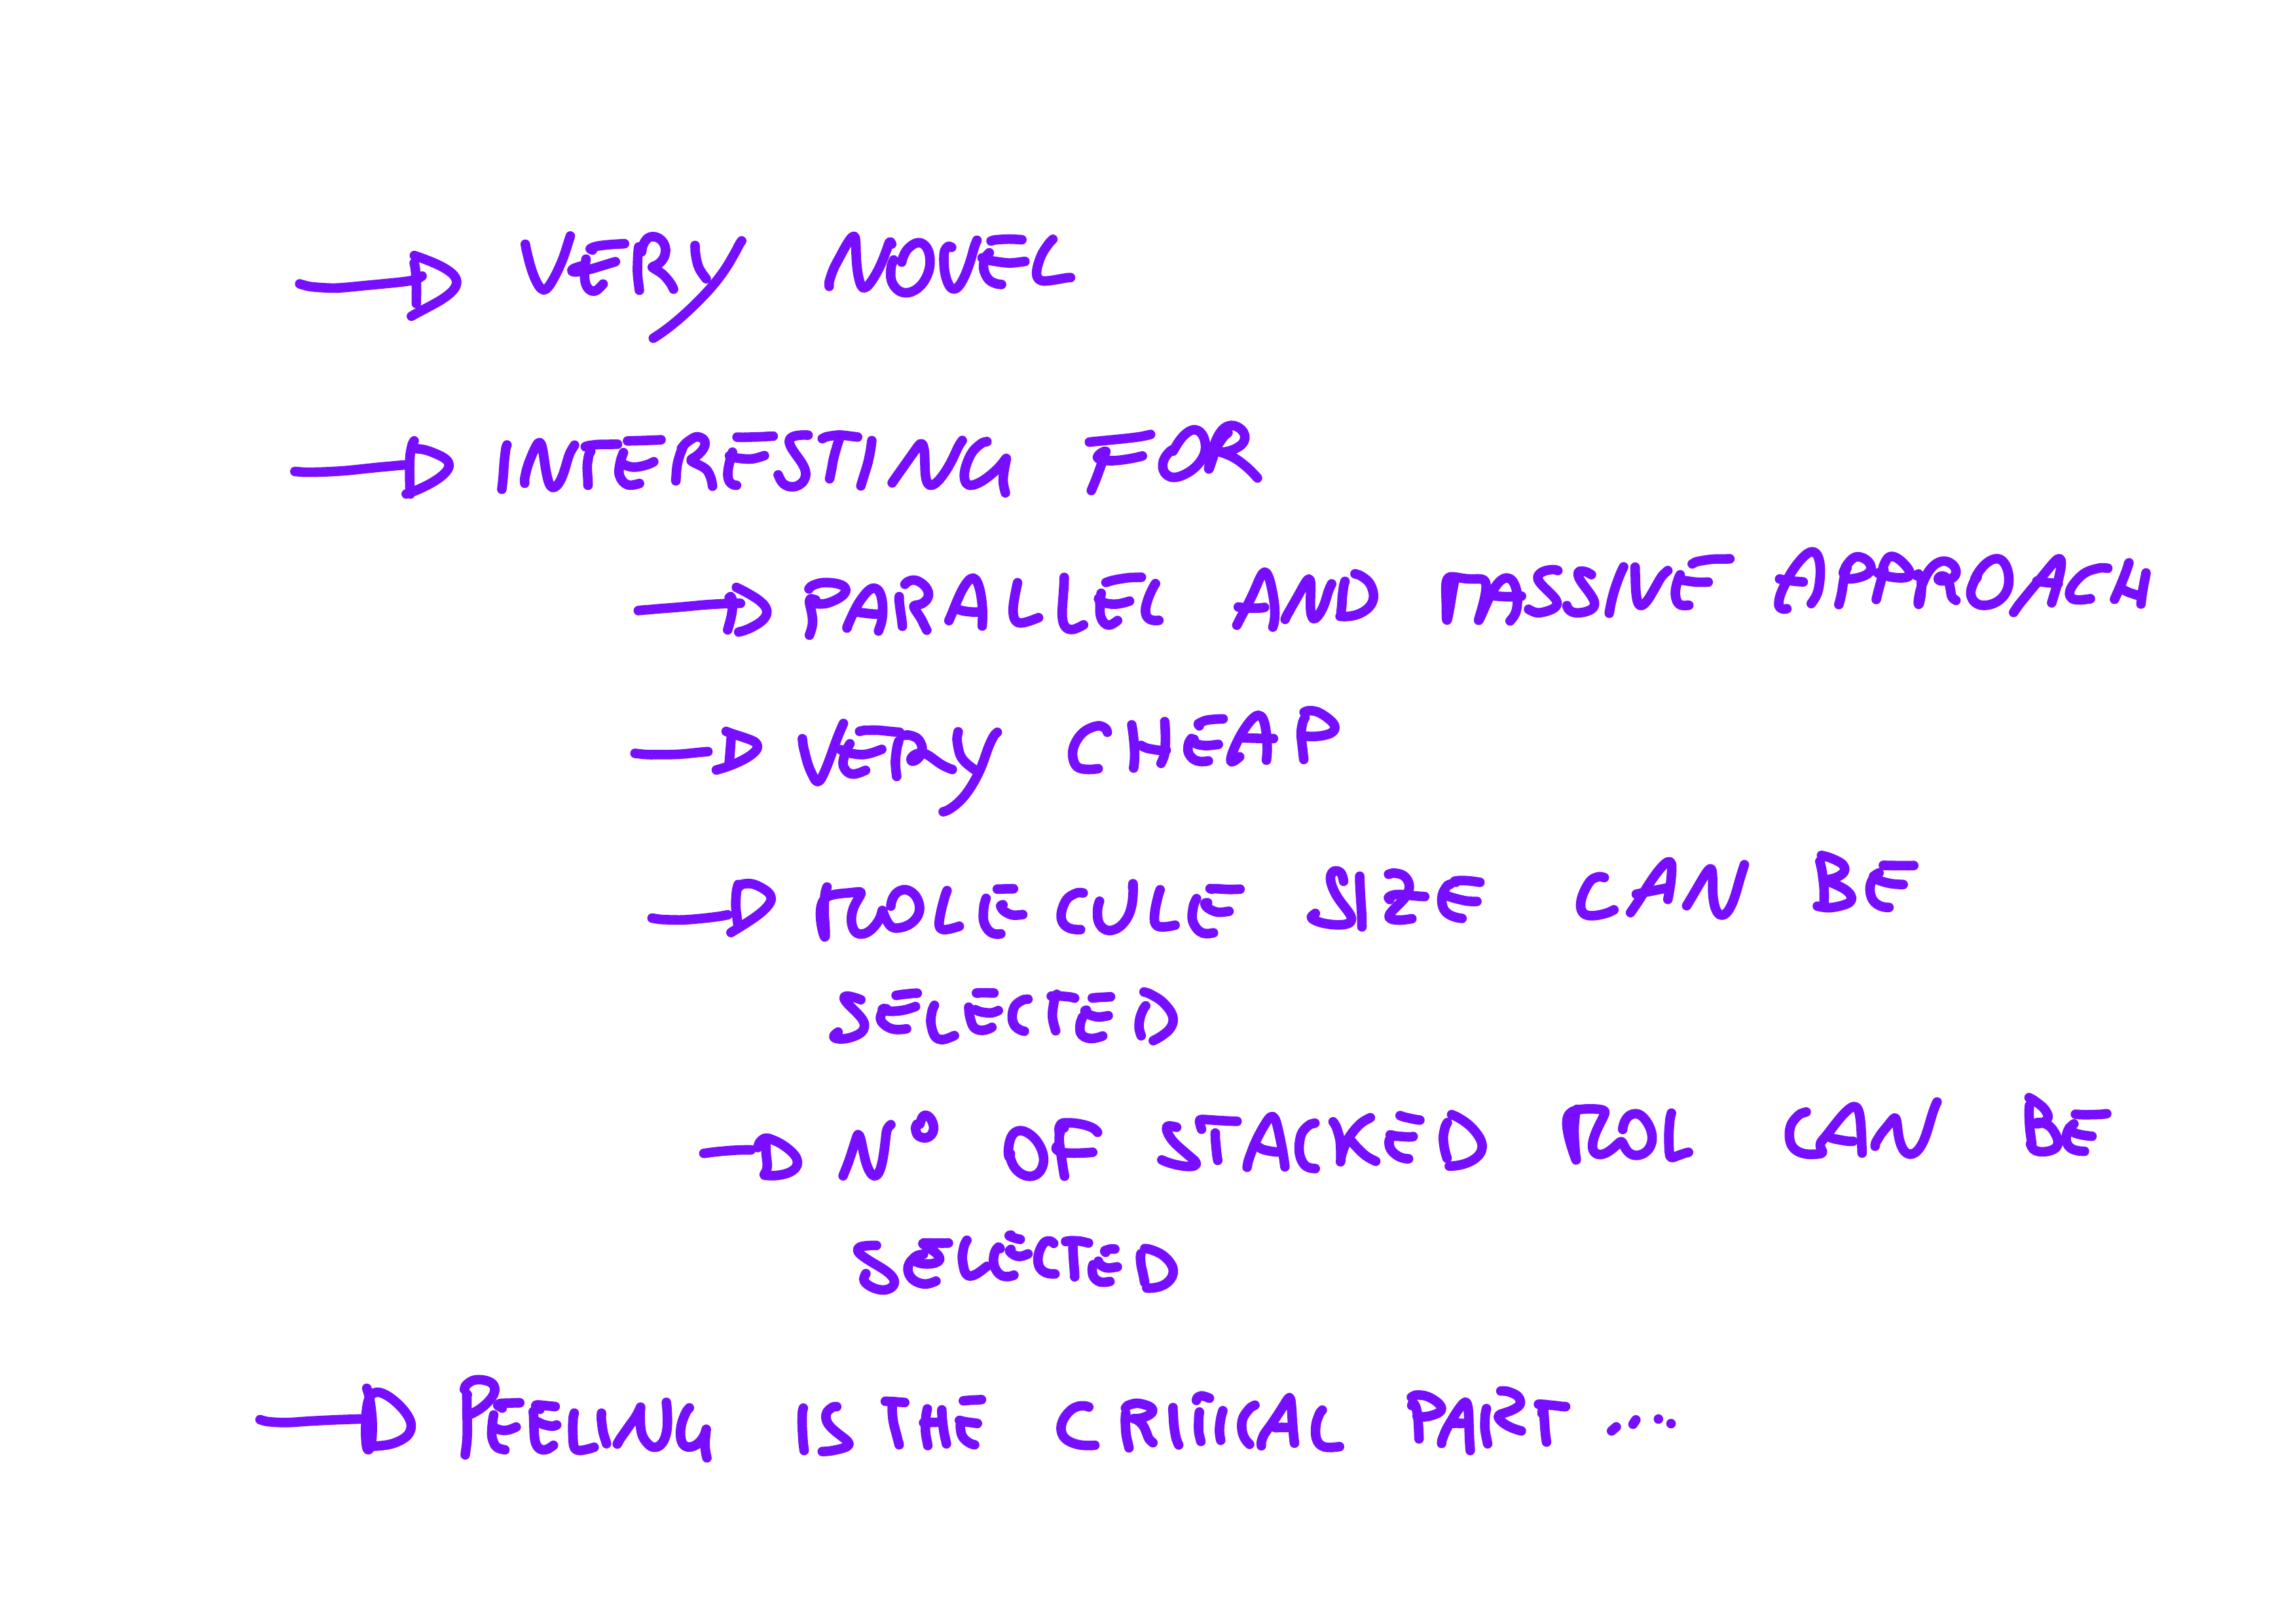 → VERY NOVEL
→ INTERESTING FOR
→ PARALLEL AND PASSIVE APPROACH
→ VERY CHEAP
→ MOLECULE SIZE CAN BE
SELECTED
→ N° OF STACKED MOL CAN BE
SELECTED
→ PEELING IS THE CRITICAL PART ....